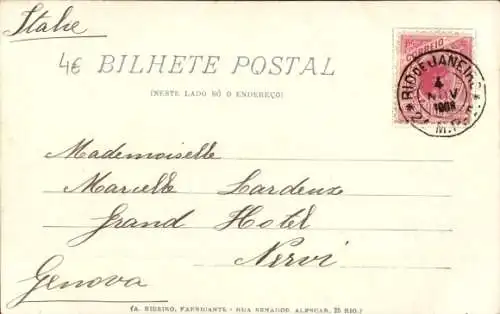 Italie
4€ BILHETE POSTAL
(NESTE LADO SÓ O ENDEREÇO)
CORREIO
RIO DE JANEIRO
4
NOV
1908
Mademoiselle
Marcelle Lardeux
Grand Hotel
Nervi
Genova
(A. RIBEIRO, FABRICANTE - RUA SENADOR ALENCAR, 25 RIO.)